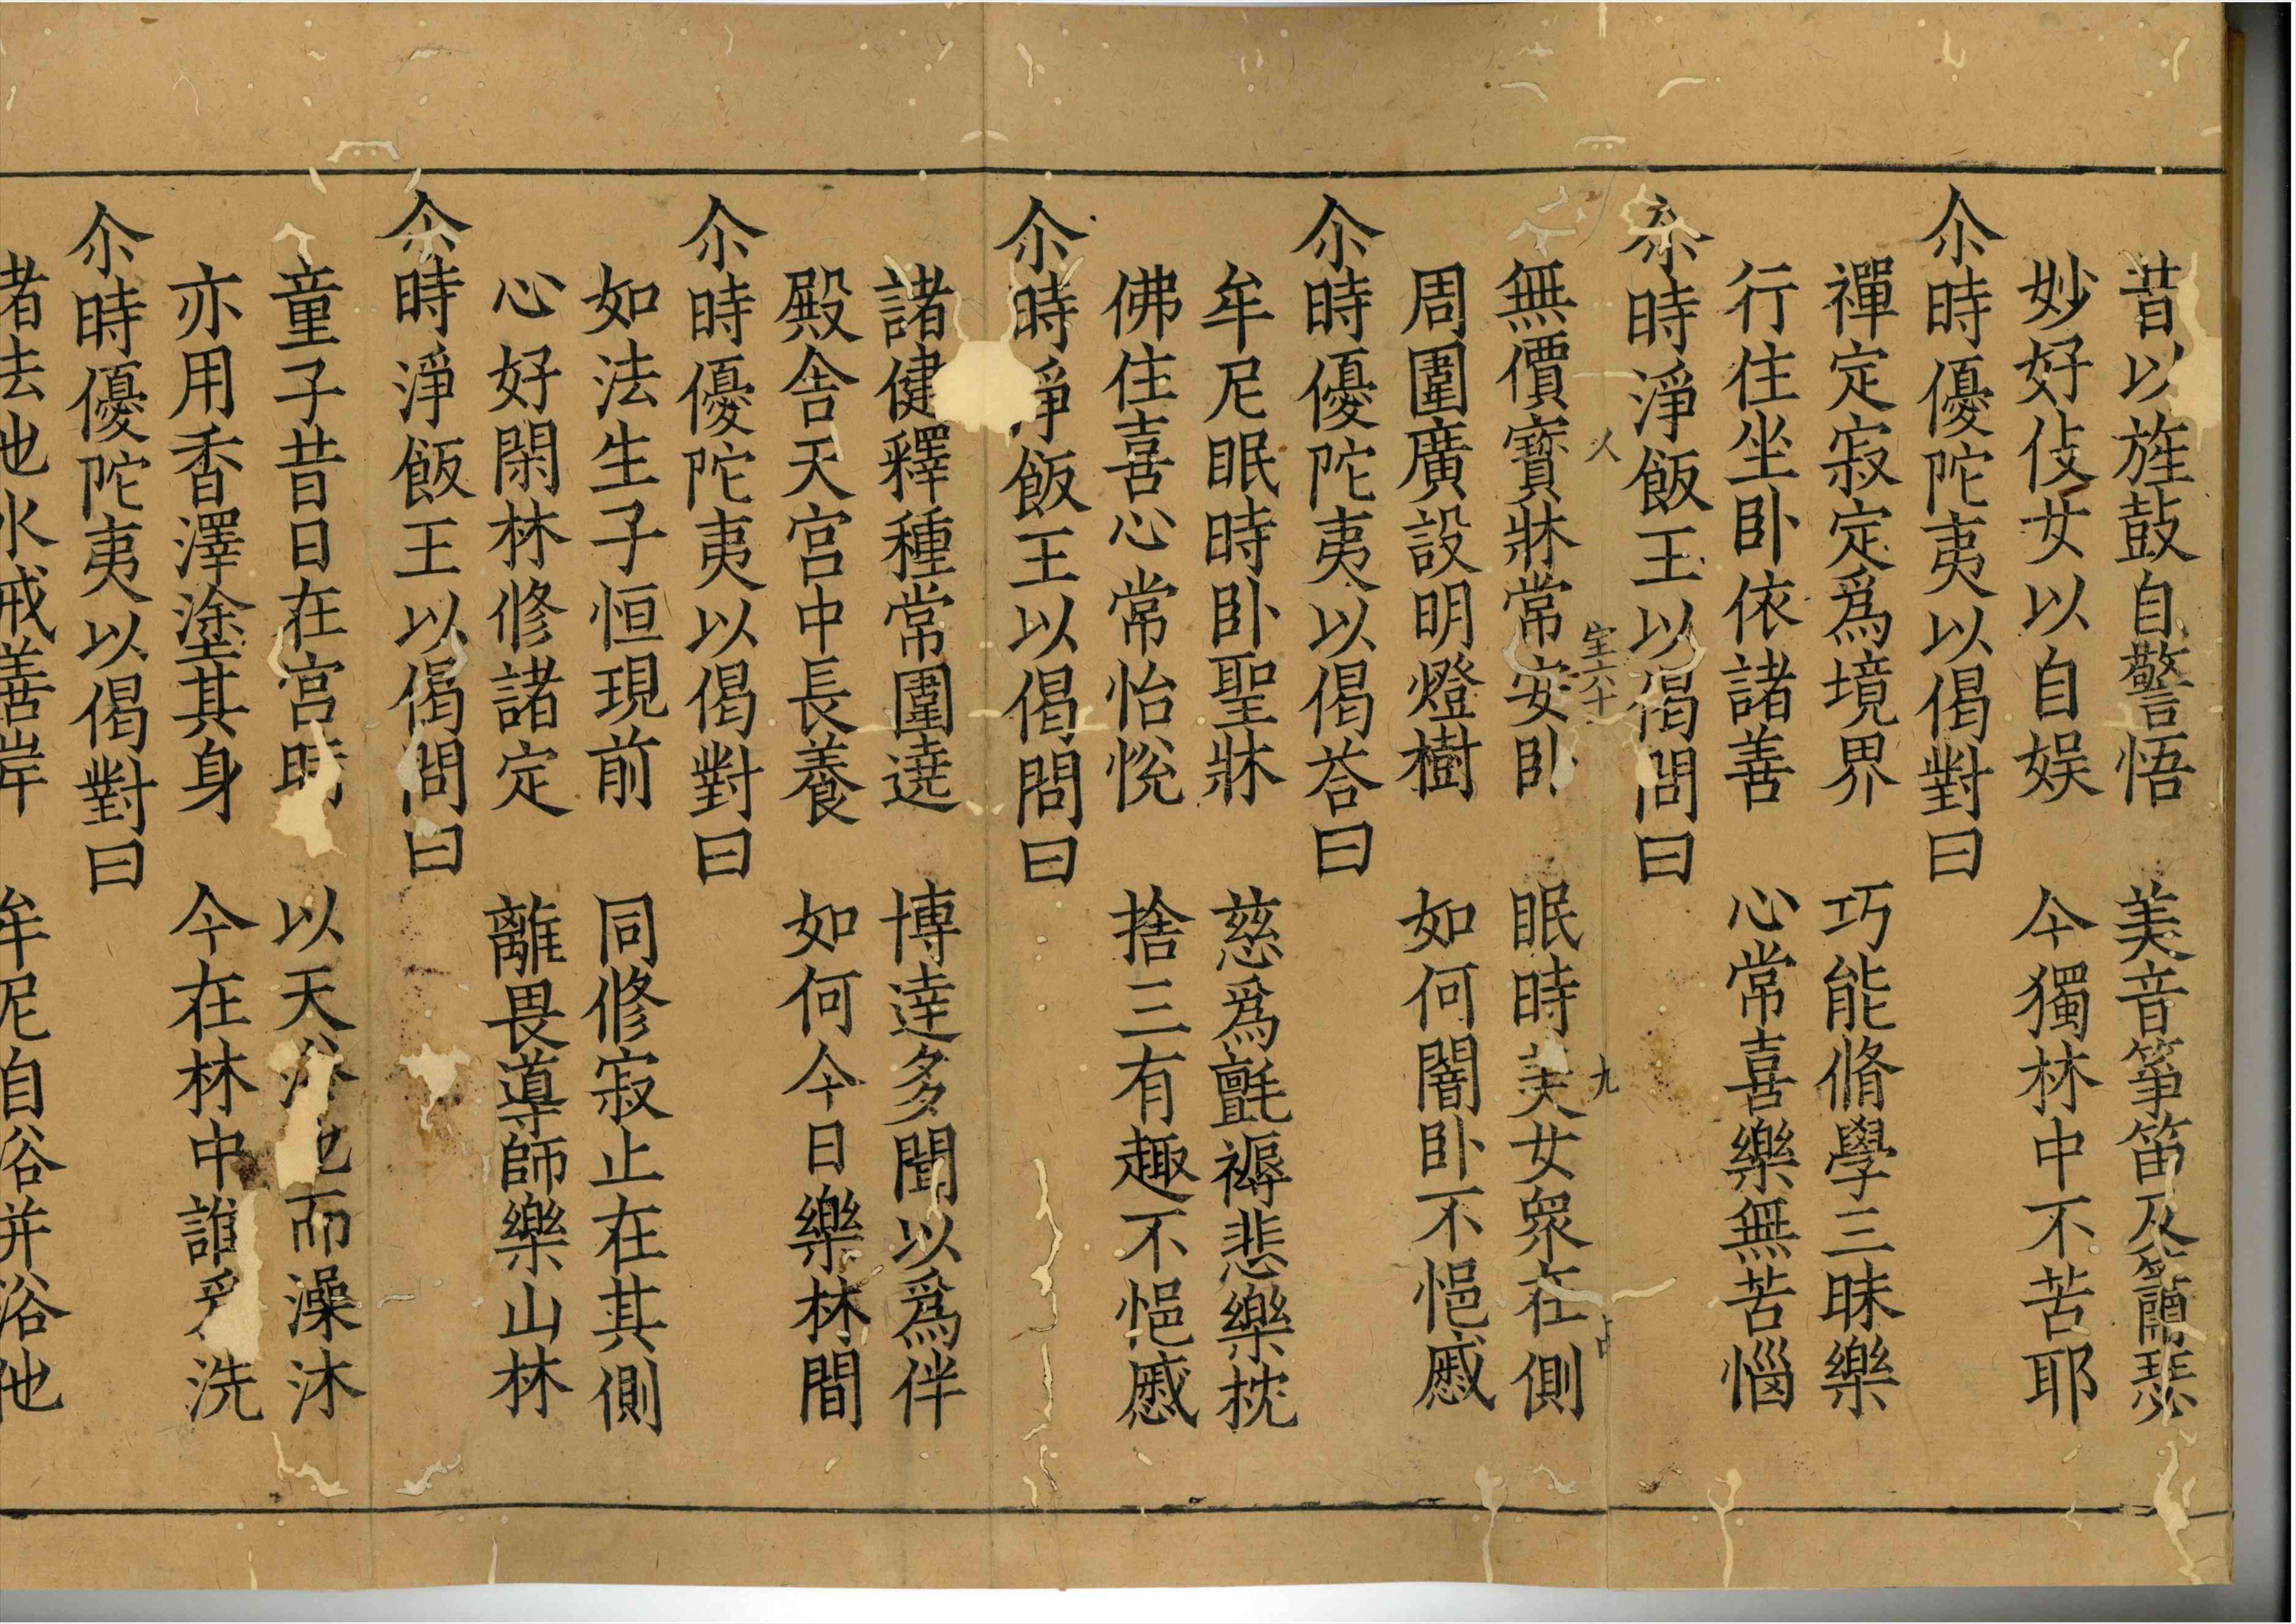 昔以旌鼓自警悟　美音箏笛及簫瑟
妙好伎女以自娛　今獨林中不苦耶
尒時優陀夷以偈對曰
禪定寂定爲境界　巧能脩學三昧樂
行住坐卧依諸善　心常喜樂無苦惱
尒時淨飯王以偈問曰
人　室六十　九
無價寶牀常安卧　眠時美女衆在側
周圍廣設明燈樹　如何闇卧不悒慼
尒時優陀夷以偈荅曰
牟尼眠時卧聖牀　慈爲氈褥悲樂枕
佛住喜心常怡悅　捨三有趣不悒慼
尒時淨飯王以偈問曰
諸健釋種常圍遶　博達多聞以爲伴
殿舍天宮中長養　如何今日樂林間
尒時優陀夷以偈對曰
如法生子恒現前　同修寂止在其側
心好閑林修諸定　離畏導師樂山林
尒時淨飯王以偈問曰
童子昔日在宮時　以天浴池而澡沐
亦用香澤塗其身　今在林中誰爲洗
尒時優陀夷以偈對曰
諸法池水戒善岸　牟尼自浴并浴他